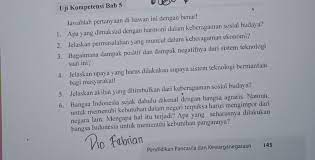 Uji Kompetensi Bab 5
Jawablah pertanyaan di bawah ini dengan benar!
1. Apa yang dimaksud dengan harmoni dalam keberagaman sosial budaya?
2. Jelaskan permasalahan yang muncul dalam keberagaman ekonomi?
3. Bagaimana dampak positif dan dampak negatifnya dari sistem teknologi
saat ini?
4. Jelaskan upaya yang harus dilakukan supaya sistem teknologi bermanfaat
bagi masyarakat!
5. Jelaskan akibat yang ditimbulkan dari keberagaman sosial budaya?
6. Bangsa Indonesia sejak dahulu dikenal dengan bangsa agraris. Namun,
untuk memenuhi kebutuhan dalam negeri terpaksa harus mengimpor dari
negara lain. Mengapa hal itu terjadi? Apa yang seharusnya dilakukan
bangsa Indonesia untuk memenuhi kebutuhan pangannya?
Dio Fabrian
Pendidikan Pancasila dan Kewarganegaraan 145